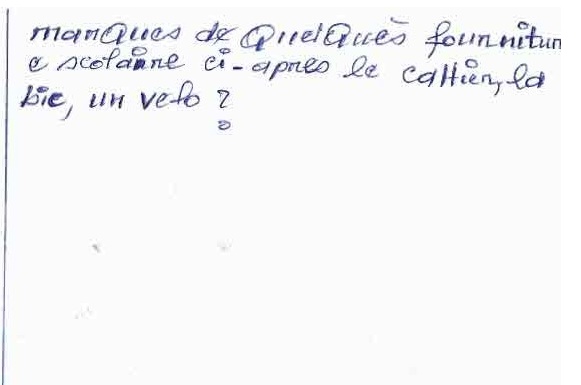 manques de Quelques founnitun
e scolainne ci-apnes le cahien, la
bic, un velo ?